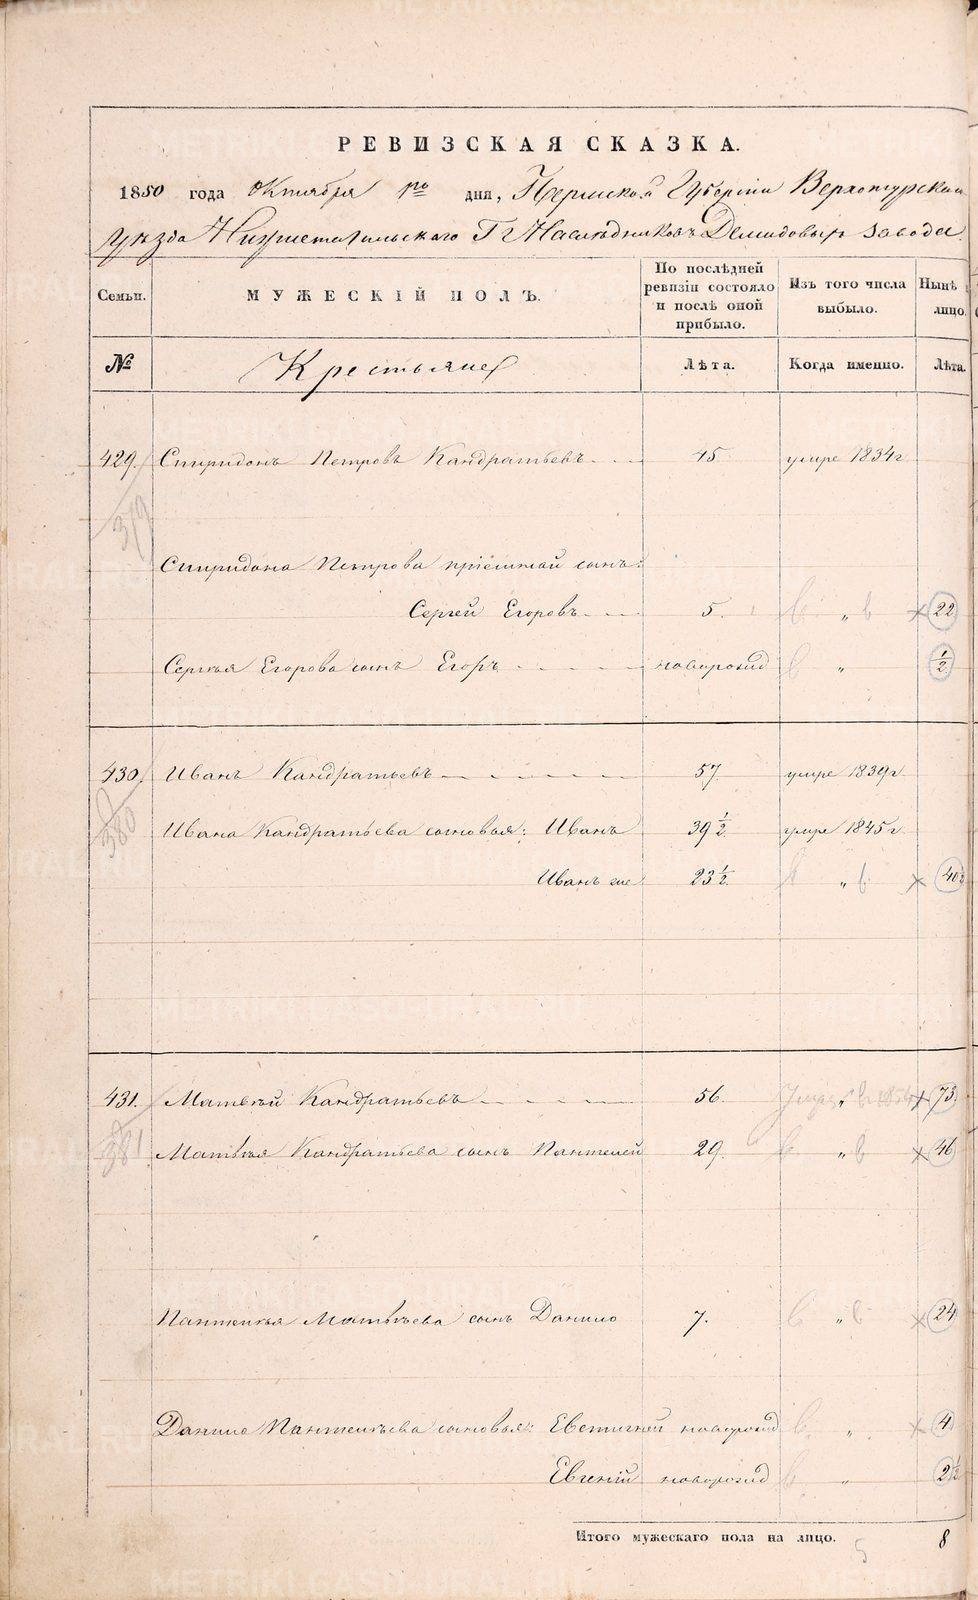 РЕВИЗСКАЯ СКАЗКА.
1850 года Октября 1го дня, Пермской Губернии Верхотурскаго
Уѣзда Нижнетагильскаго Гг Наслѣдниковъ Демидовыхъ завода.
Семьи. МУЖЕСКІЙ ПОЛЪ. По послѣдней ревизіи состояло и послѣ оной прибыло. Изъ того числа выбыло. Нынѣ лицо.
№ Крестьяне Лѣта. Когда именно. Лѣта.
429. Спиридонъ Петровъ Кандратьевъ 45 умре 1834 г
319
Спиридона Петрова пріемной сынъ:
Сергей Егоровъ 5. " × 22
Сергѣя Егорова сынъ Егоръ новорожд " 1/2
430. Иванъ Кандратьевъ 57. умре 1839 г.
380
Ивана Кандратьева сыновья: Иванъ 39 1/2 умре 1845 г.
Иванъ же 23 1/2. " × 40 1/2
431. Матвѣй Кандратьевъ 56. " × 73
381
Матвѣя Кандратьева сынъ Пантелей 29. " × 46
Пантелѣя Матвѣева сынъ Данило 7. " × 24
Данила Пантелѣева сыновья: Евстигней новорожд " × 4
Евгеній новорожд " 2 1/2
Итого мужескаго пола на лицо. 8
5
METRIKI.GASO-URAL.RU